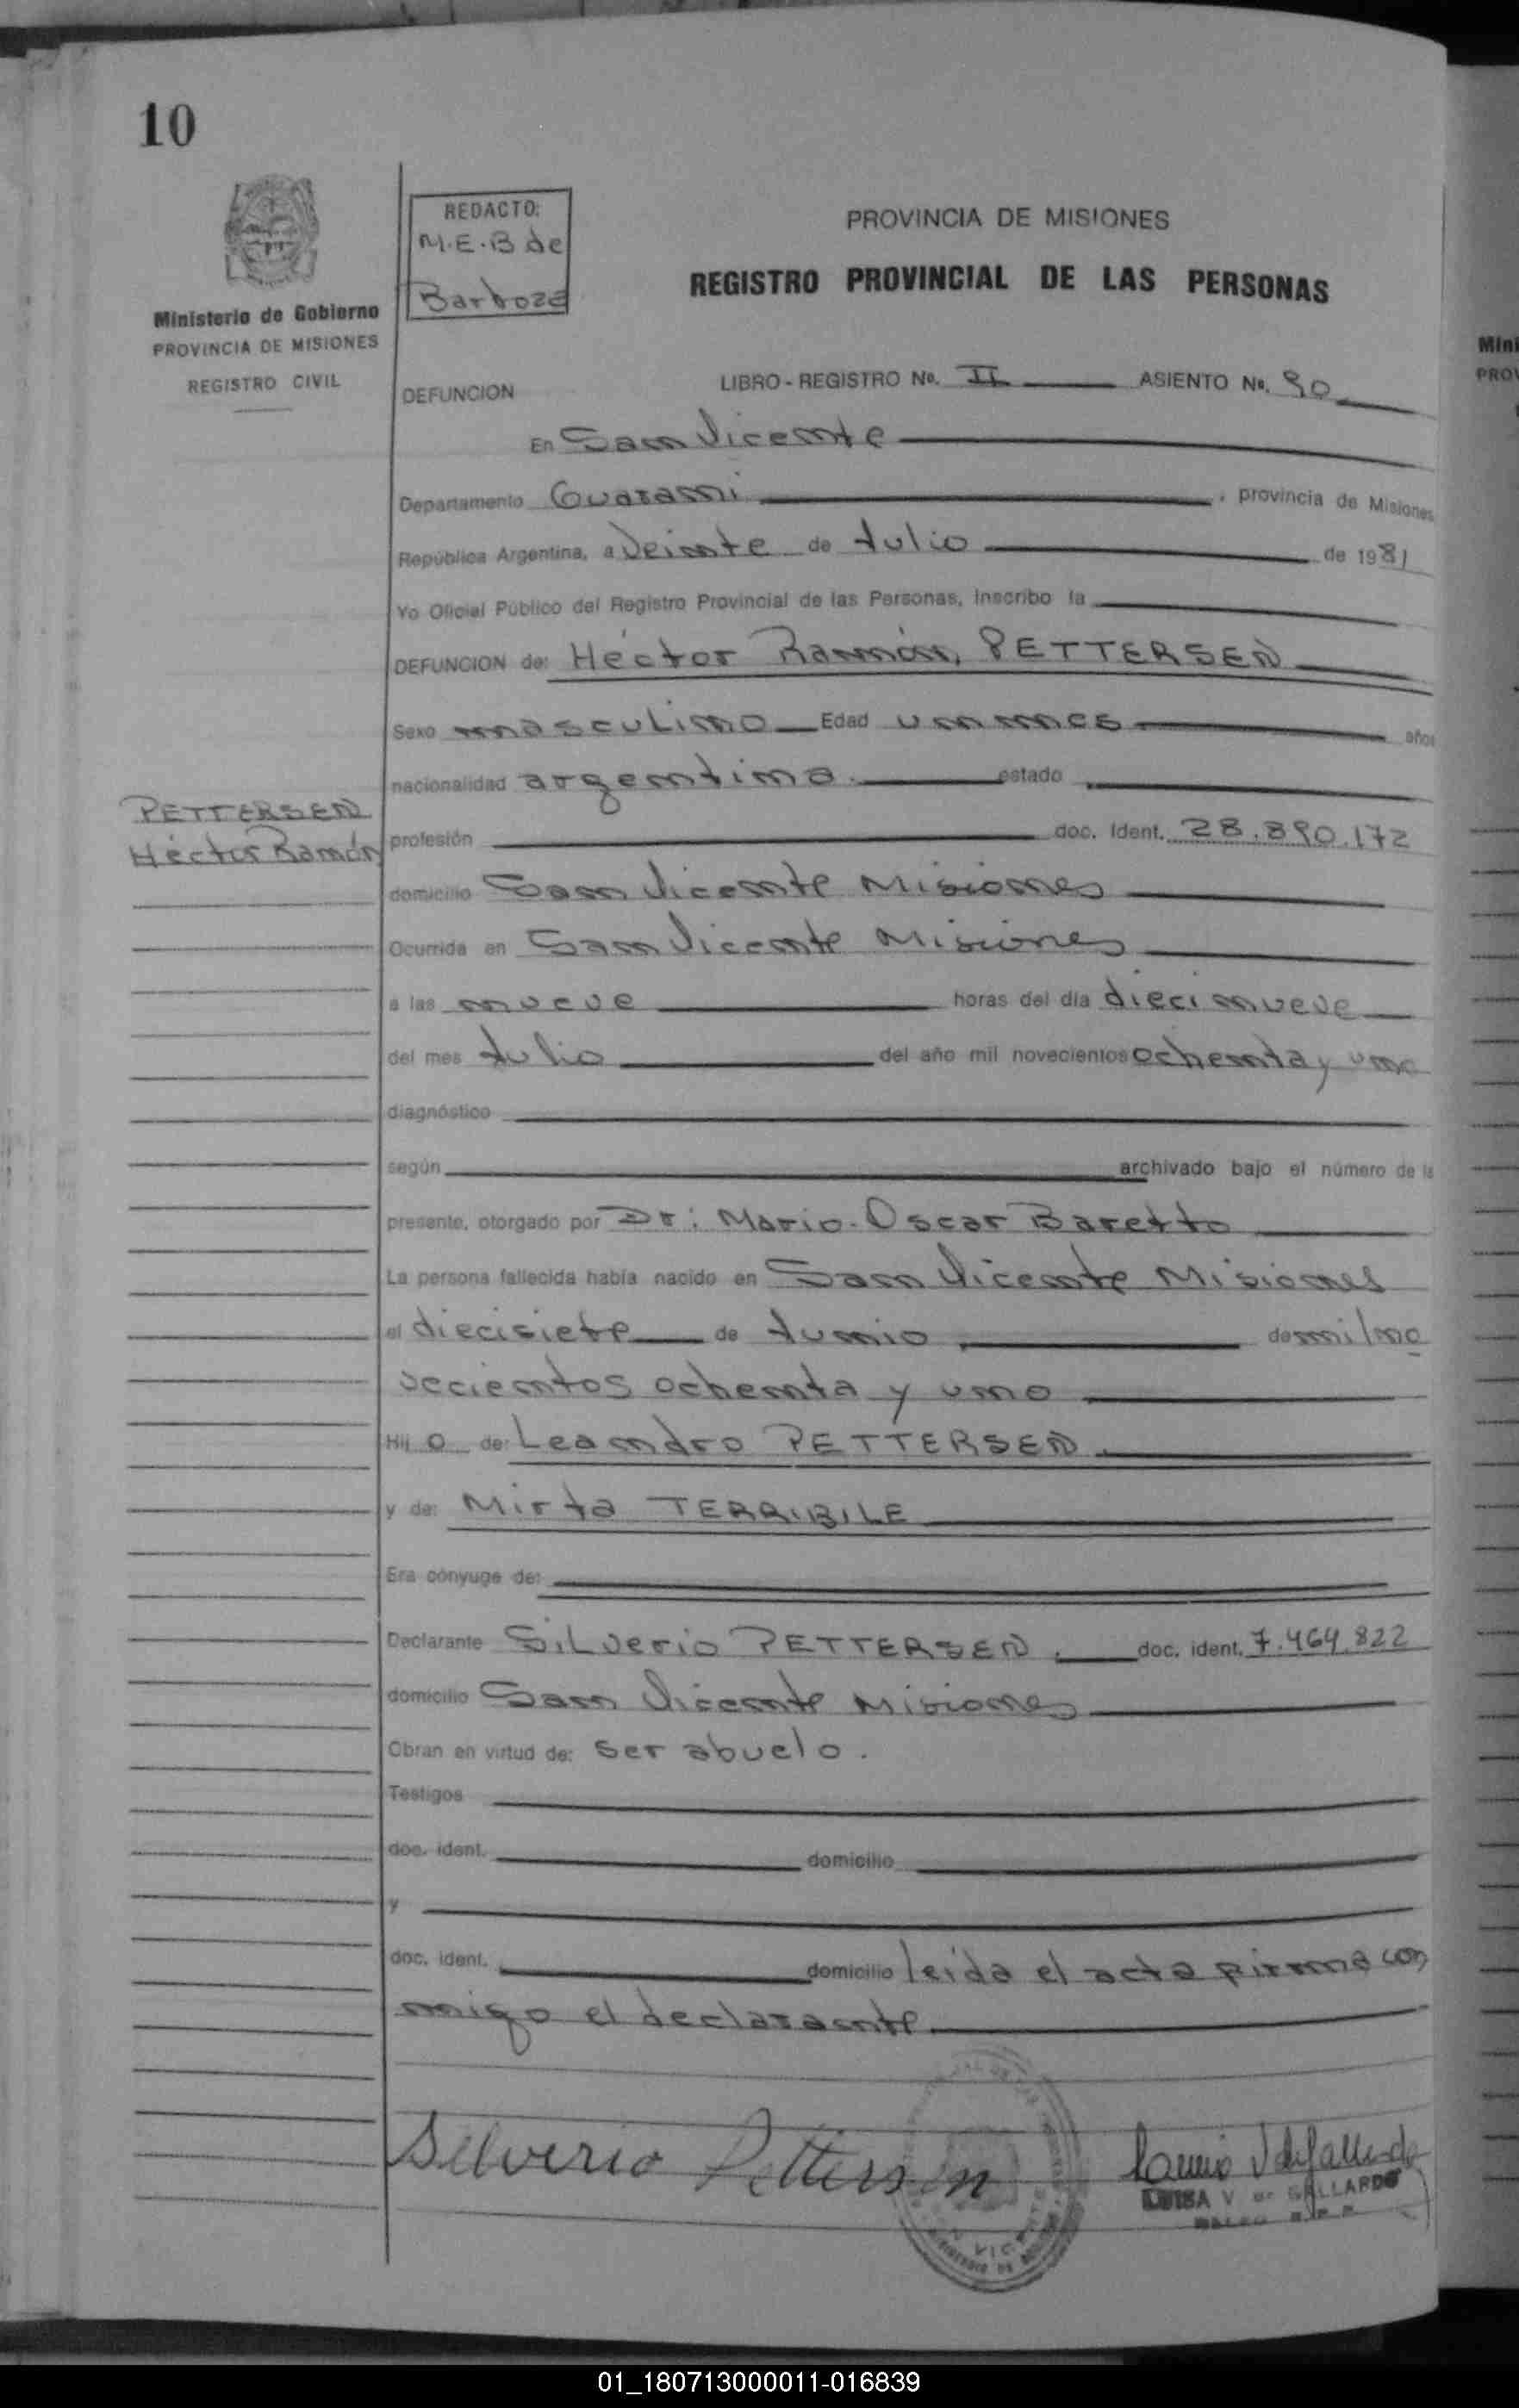 10
REDACTO:
M.E.B de
Barboza
Ministerio de Gobierno
PROVINCIA DE MISIONES
REGISTRO CIVIL
PROVINCIA DE MISIONES
REGISTRO PROVINCIAL DE LAS PERSONAS
DEFUNCION LIBRO - REGISTRO No. II ASIENTO No. 90
En San Vicente
Departamento Guarani , provincia de Misiones
República Argentina, a Veinte de Julio de 1981
Yo Oficial Público del Registro Provincial de las Personas, Inscribo la
DEFUNCION de: Héctor Ramón, PETTERSEN
Sexo masculino Edad un mes años
nacionalidad argentina. estado
PETTERSEN
Héctor Ramón
profesión doc. Ident. 28.890.172
domicilio San Vicente Misiones
Ocurrida en San Vicente Misiones
a las nueve horas del día diecinueve
del mes Julio del año mil novecientos ochenta y uno
diagnóstico
según archivado bajo el número de la
presente, otorgado por Dr: Mario Oscar Baretto
La persona fallecida había nacido en San Vicente Misiones
el diecisiete de Junio de mil no
vecientos ochenta y uno
Hij o de: Leandro PETTERSEN
y de: Mirta TERRIBILE
Era cónyuge de:
Declarante Silverio PETTERSEN. doc. ident. 7.464.822
domicilio San Vicente Misiones
Obran en virtud de: ser abuelo.
Testigos
doc. ident. domicilio
y
doc. ident. domicilio leida el acta firma con
migo el declarante
Silverio Pettersen
LUISA V de GALLARDO
01_180713000011-016839